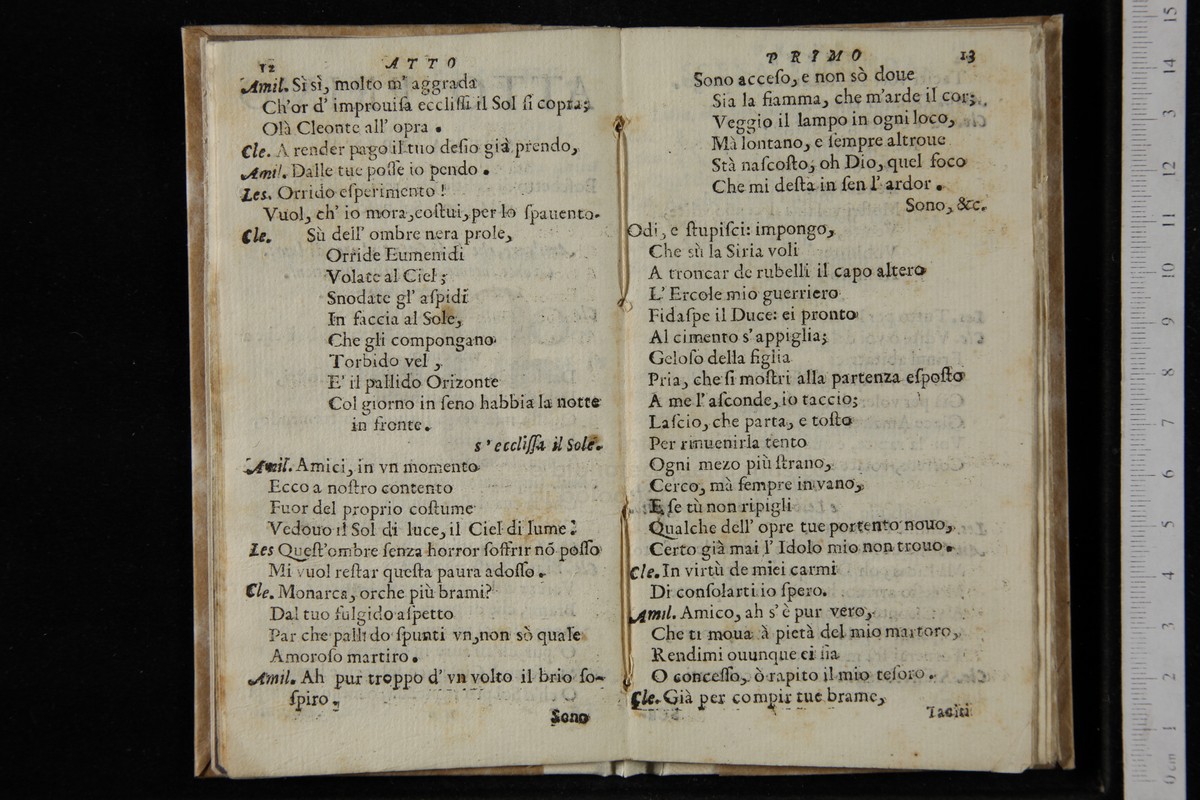 12 ATTO
Amil. Sì sì, molto m' aggrada
Ch'or d' improuiſa eccliſſi il Sol ſi copra;
Olà Cleonte all' opra.
Cle. A render pago il tuo deſio già prendo,
Amil. Dalle tue poſſe io pendo.
Les. Orrido eſperimento!
Vuol, ch' io mora, coſtui, per lo ſpauento.
Cle. Sù dell' ombre nera prole,
Orride Eumenidi
Volate al Ciel;
Snodate gl' aſpidi
In faccia al Sole,
Che gli compongano
Torbido vel,
E' il pallido Orizonte
Col giorno in ſeno habbia la notte
in fronte.
s' eccliſſa il Sole.
Amil. Amici, in vn momento
Ecco a noſtro contento
Fuor del proprio coſtume
Vedouo il Sol di luce, il Ciel di lume?
Les Queſt'ombre ſenza horror ſoffrir nõ poſſo
Mi vuol reſtar queſta paura adoſſo.
Cle. Monarca, orche più brami?
Dal tuo fulgido aſpetto
Par che pallido ſpunti vn, non sò quale
Amoroſo martiro.
Amil. Ah pur troppo d' vn volto il brio ſo-
ſpiro.
Sono
PRIMO 13
Sono acceſo, e non sò doue
Sia la fiamma, che m'arde il cor;
Veggio il lampo in ogni loco,
Mà lontano, e ſempre altroue
Stà naſcoſto, oh Dio, quel foco
Che mi deſta in ſen l' ardor.
Sono, &c.
Odi, e ſtupiſci: impongo,
Che sù la Siria voli
A troncar de rubelli il capo altero
L' Ercole mio guerriero
Fidaſpe il Duce: ei pronto
Al cimento s' appiglia;
Geloſo della figlia
Pria, che ſi moſtri alla partenza eſpoſto
A me l' aſconde, io taccio;
Laſcio, che parta, e toſto
Per rinuenirla tento
Ogni mezo più ſtrano,
Cerco, mà ſempre in vano,
E ſe tù non ripigli
Qualche dell' opre tue portento nouo,
Certo già mai l' Idolo mio non trouo.
Cle. In virtù de miei carmi
Di conſolarti io ſpero.
Amil. Amico, ah s' è pur vero,
Che ti moua à pietà del mio martoro,
Rendimi ouunque ei ſia
O conceſſo, ò rapito il mio teſoro.
Cle. Già per compir tue brame,
Taciti